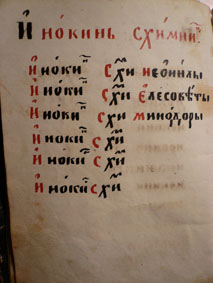 И҆но́кинь схи́мниц
И҆но́ки схи нео҆ни́лы
И҆но́ки схи є҆лесове́ты
И҆но́ки схи минодо́ры
И҆но́ки схи
И҆но́ки схи
И҆но́ки схи